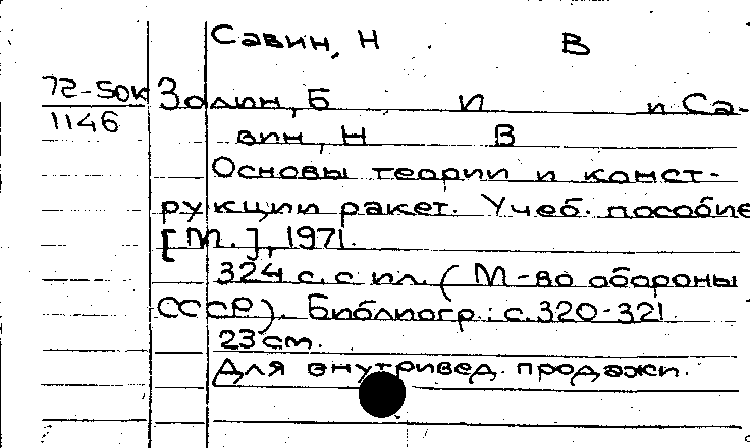 Савин, Н В
72-50к Золин, Б И и Са-
1146
вин, Н В
Основы теории и конст-
рукции ракет. Учеб. пособие
[М.], 1971.
324 с. с ил. (М-во обороны
СССР). Библиогр.: с. 320-321.
23 см.
Для внутривед. продажи.